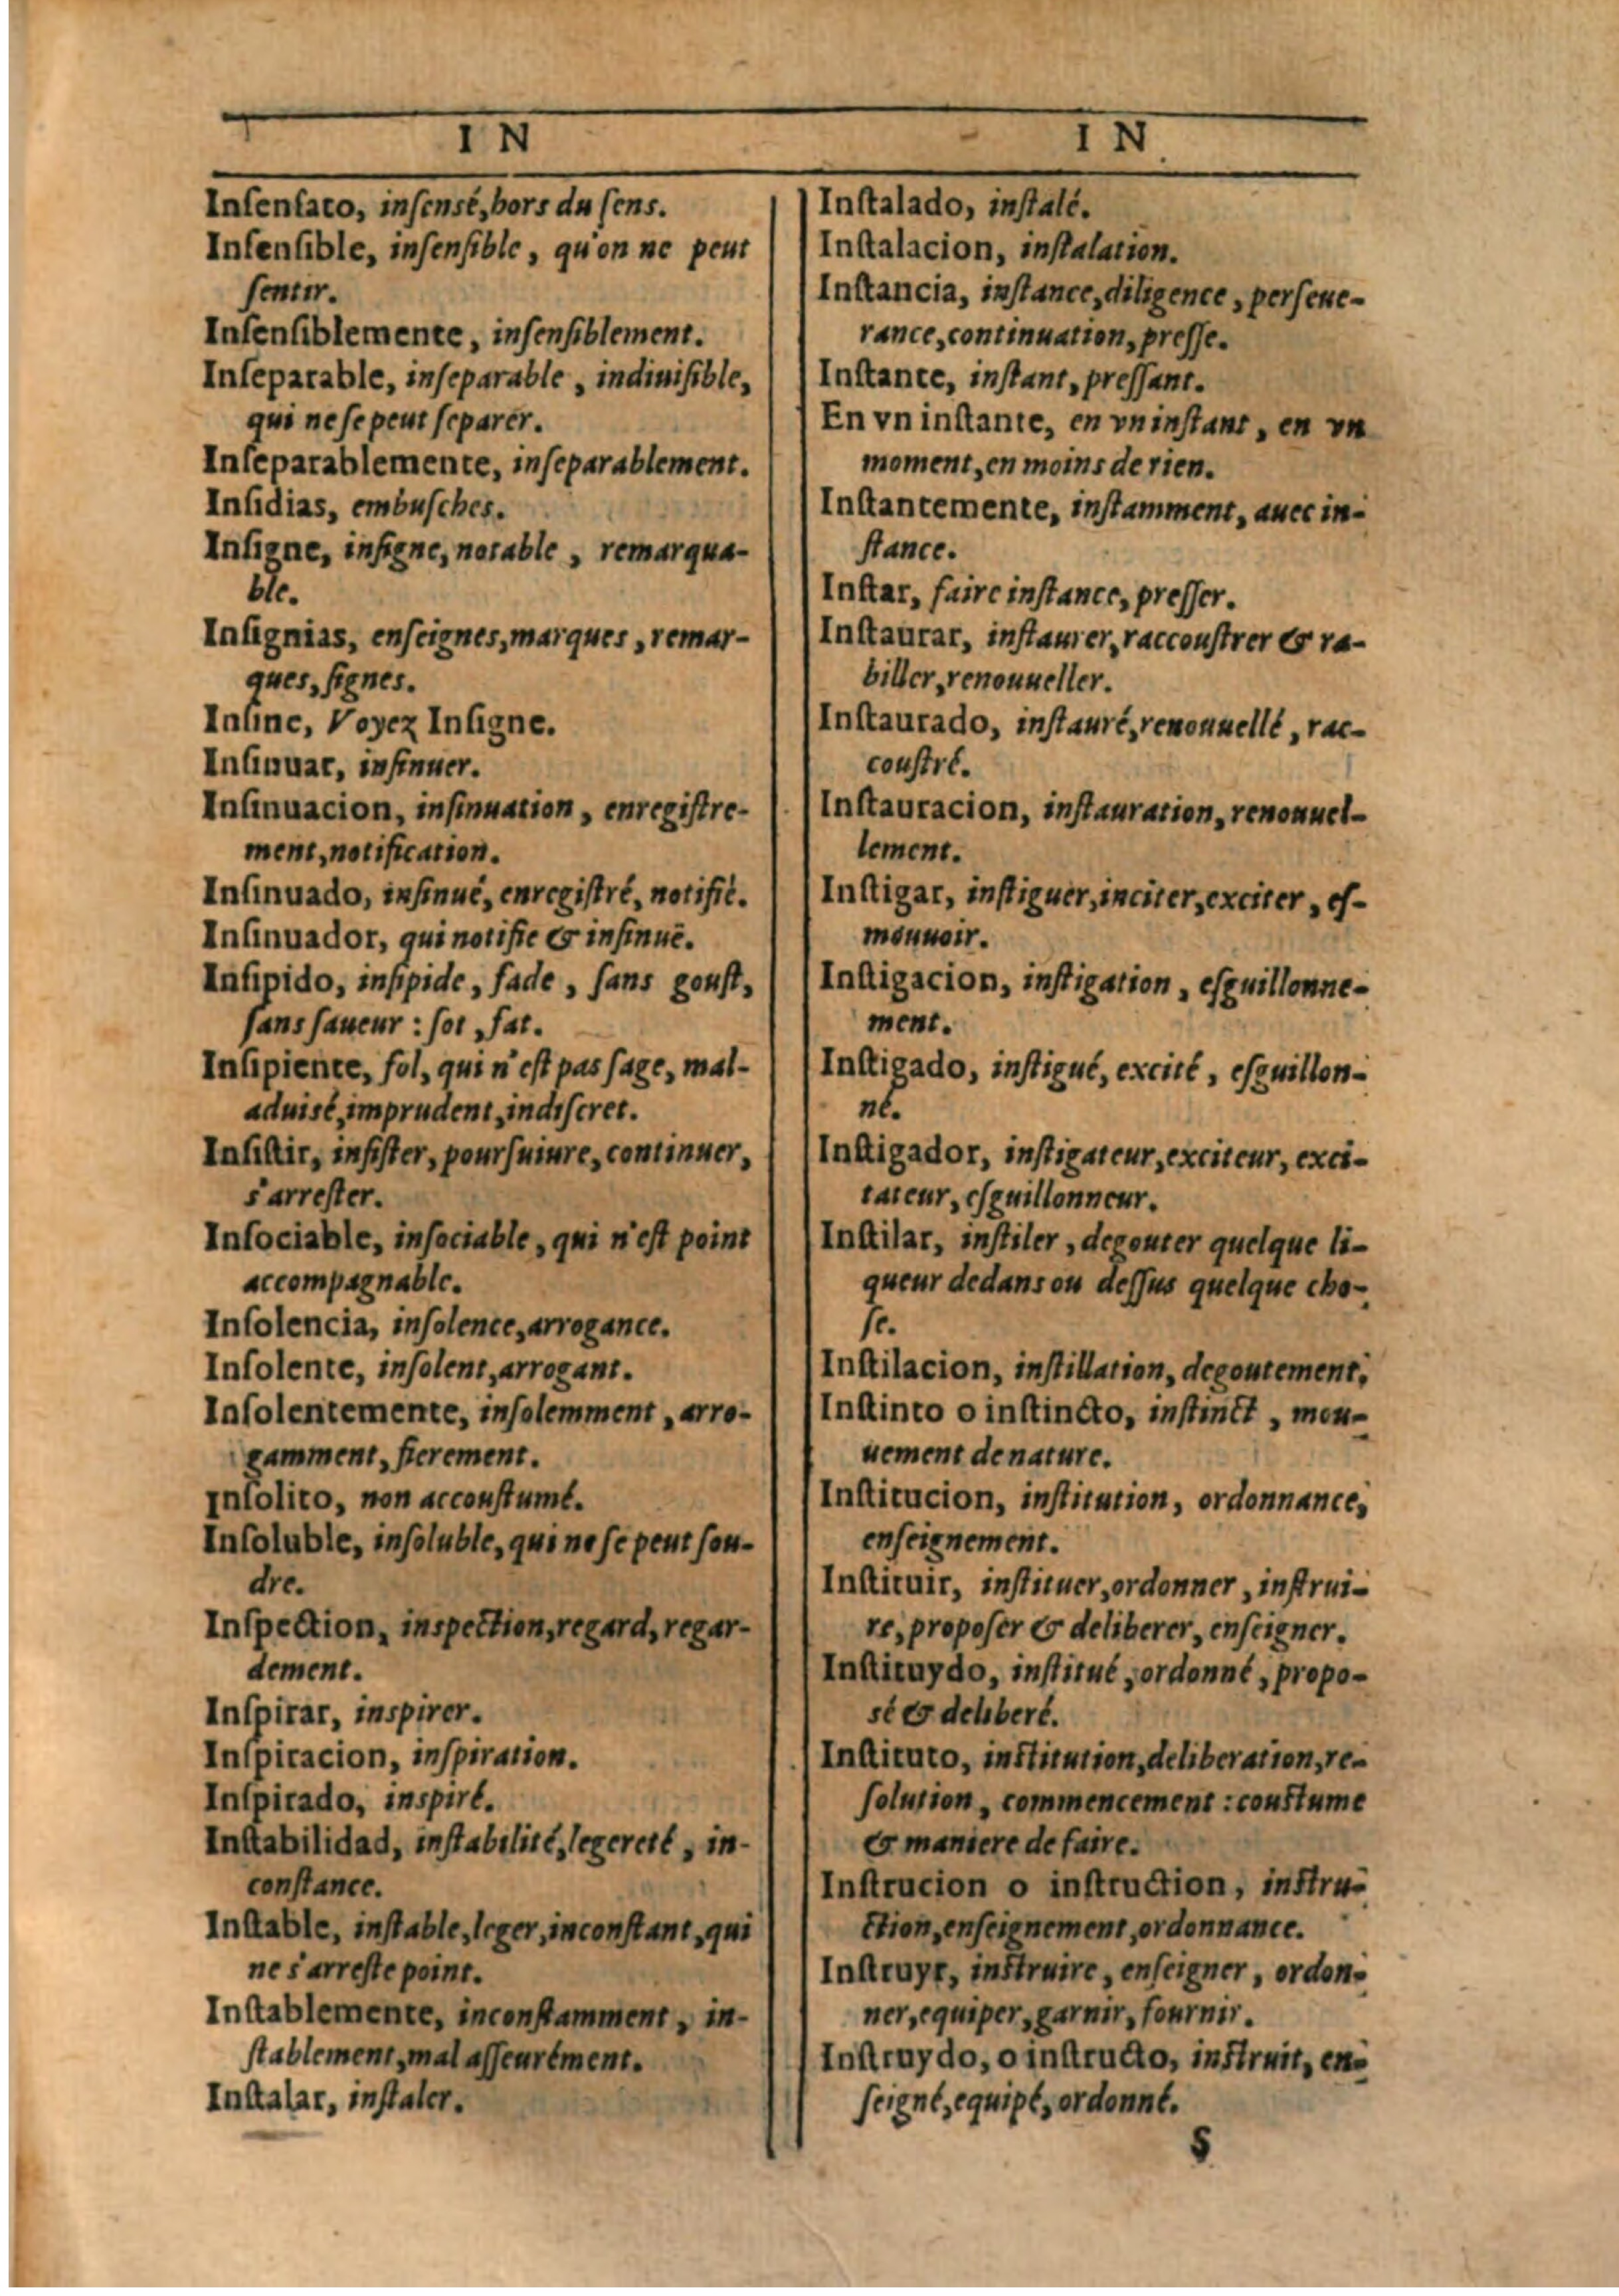 I N
Inſenſato, inſensé, hors du ſens.
Inſenſible, inſenſible, qu'on ne peut
ſentir.
Inſenſiblemente, inſenſiblement.
Inſeparable, inſeparable, indiuiſible,
qui ne ſe peut ſeparer.
Inſeparablemente, inſeparablement.
Inſidias, embuſches.
Inſigne, inſigne, notable, remarqua-
ble.
Inſignias, enſeignes, marques, remar-
ques, ſignes.
Inſine, Voyez Inſigne.
Inſinuar, inſinuer.
Inſinuacion, inſinuation, enregiſtre-
ment, notification.
Inſinuado, inſinué, enregiſtré, notifié.
Inſinuador, qui notifie & inſinuë.
Inſipido, inſipide, fade, ſans gouſt,
ſans ſaueur : ſot, fat.
Inſipiente, fol, qui n'eſt pas ſage, mal-
aduisé, imprudent, indiſcret.
Inſiſtir, inſiſter, pourſuiure, continuer,
s'arreſter.
Inſociable, inſociable, qui n'eſt point
accompagnable.
Inſolencia, inſolence, arrogance.
Inſolente, inſolent, arrogant.
Inſolentemente, inſolemment, arro-
gamment, fierement.
Inſolito, non accouſtumé.
Inſoluble, inſoluble, qui ne ſe peut ſou-
dre.
Inſpection, inspection, regard, regar-
dement.
Inſpirar, inspirer.
Inſpiracion, inſpiration.
Inſpirado, inspiré.
Inſtabilidad, inſtabilité, legereté, in-
conſtance.
Inſtable, inſtable, leger, inconſtant, qui
ne s'arreſte point.
Inſtablemente, inconſtamment, in-
ſtablement, mal aſſeurément.
Inſtalar, inſtaler.
I N
Inſtalado, inſtalé.
Inſtalacion, inſtalation.
Inſtancia, inſtance, diligence, perſeue-
rance, continuation, preſſe.
Inſtante, inſtant, preſſant.
En vn inſtante, en vn inſtant, en vn
moment, en moins de rien.
Inſtantemente, inſtamment, auec in-
ſtance.
Inſtar, faire inſtance, preſſer.
Inſtaurar, inſtaurer, raccouſtrer & ra-
biller, renouueller.
Inſtaurado, inſtauré, renouuellé, rac-
couſtré.
Inſtauracion, inſtauration, renouuel-
lement.
Inſtigar, inſtiguer, inciter, exciter, eſ-
mouuoir.
Inſtigacion, inſtigation, eſguillonne-
ment.
Inſtigado, inſtigué, excité, eſguillon-
né.
Inſtigador, inſtigateur, exciteur, exci-
tateur, eſguillonneur.
Inſtilar, inſtiler, degouter quelque li-
queur dedans ou deſſus quelque cho-
ſe.
Inſtilacion, inſtillation, degoutement.
Inſtinto o inſtincto, inſtinct, mou-
uement de nature.
Inſtitucion, inſtitution, ordonnance,
enſeignement.
Inſtituir, inſtituer, ordonner, inſtrui-
re, propoſer & deliberer, enſeigner.
Inſtituydo, inſtitué, ordonné, propo-
sé & deliberé.
Inſtituto, inſtitution, deliberation, re-
ſolution, commencement : couſtume
& maniere de faire.
Inſtrucion o inſtruction, inſtru-
ction, enſeignement, ordonnance.
Inſtruyr, inſtruire, enſeigner, ordon-
ner, equiper, garnir, fournir.
Inſtruydo, o inſtructo, inſtruit, en-
ſeigné, equipé, ordonné.
S